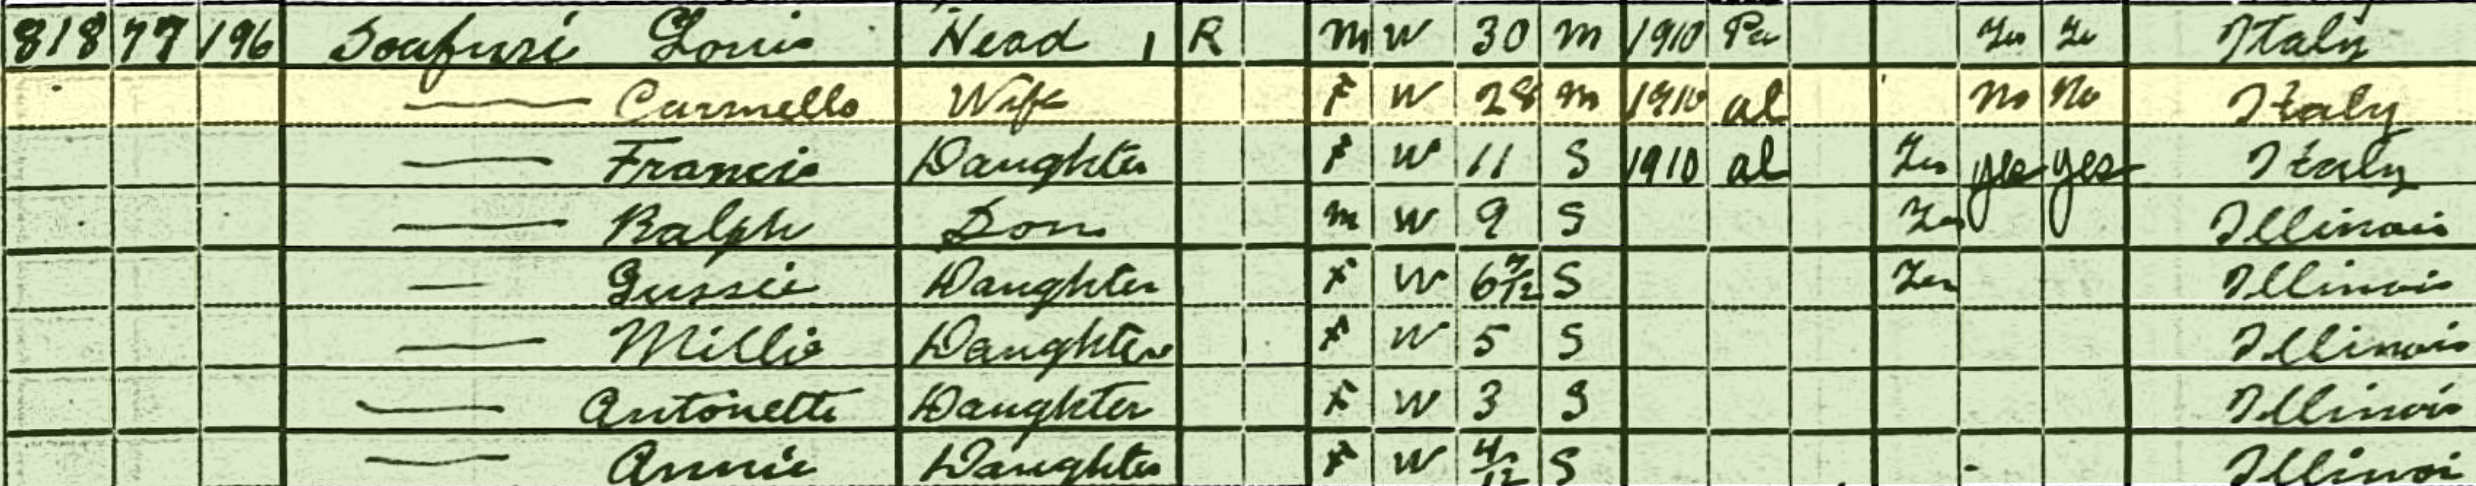 818 77 196 Scafuri Louis Head 1 R M W 30 M 1910 Pa Yes Yes Italy
Carmello Wife F W 28 M 1910 al No No Italy
Francis Daughter F W 11 S 1910 al Yes yes yes Italy
Ralph Son M W 9 S Yes Illinois
Gussie Daughter F W 6 7/12 S Yes Illinois
Millie Daughter F W 5 S Illinois
Antonette Daughter F W 3 S Illinois
Annie Daughter F W 4/12 S Illinoi